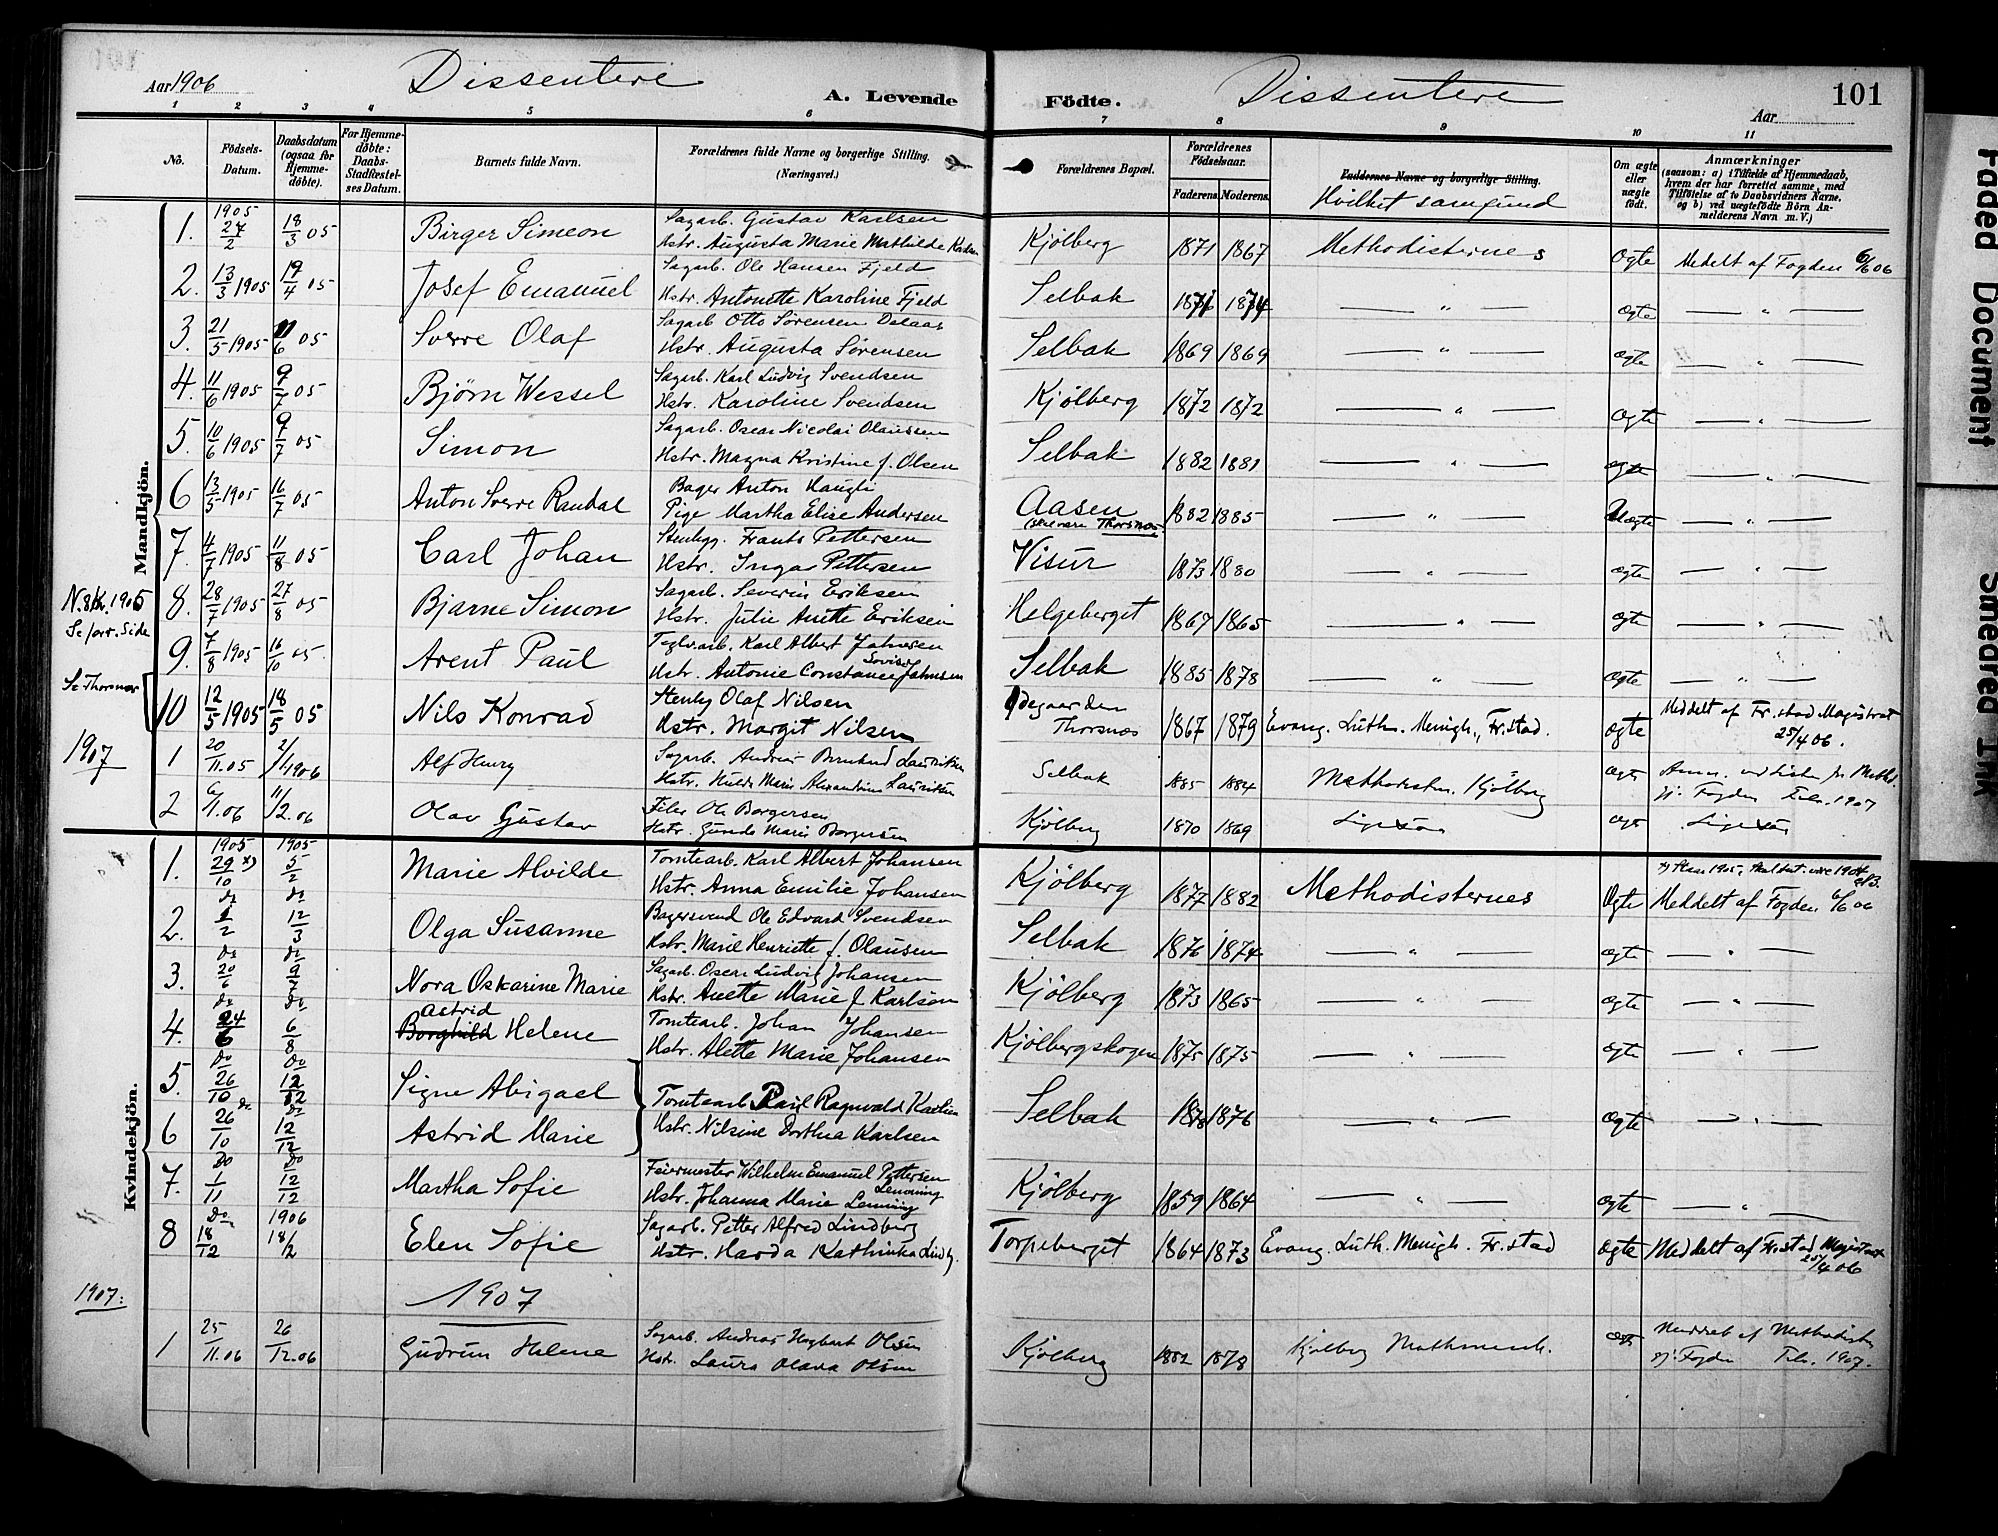 Aar 1906
Dissentere
A. Levende
Födte.
Dissentere
101
Aar
1 2 3 4 5 6 7 8 9 10 11
No.
Födsels-Datum.
Daabsdatum (ogsaa for Hjemme-döbte).
For Hjemme-döbte: Daabs-Stadfæstel-ses Datum.
Barnets fulde Navn.
Forældrenes fulde Navne og borgerlige Stilling. (Næringsvei.)
Forældrenes Bopæl.
Forældrenes Födselsaar.
Faderens. Moderens.
Faddernes Navne og borgerlige Stilling.
Hvilket samfund
Om ægte eller uægte födt.
Anmærkninger (saasom: a) i Tilfælde af Hjemmedaab, hvem der har forrettet samme, med Tilföielse af to Daabsvidners Navne, og b) ved uægtefödte Börn An-melderens Navn m. V.)
Mandkjön.
1. 1905 27/2 18/3 05 Birger Simeon Sagarb. Gustav Karlsen
Hstr. Augusta Marie Mathilde Karlsen Kjölberg 1871 1867 Methodisternes Ægte Medelt af Fogden 6/6 06
2. 13/3 1905 19/4 05 Josef Emanuel Sagarb. Ole Hansen Fjeld
Hstr. Antonette Karoline Fjeld Selbak 1874 — " — Ægte — " —
3. 21/5 1905 11/6 05 Sverre Olaf Sagarb Otto Sørensen
Hstr. Augusta Sørensen Selbak 1869 1869 — " — Ægte — " —
4. 11/6 1905 9/7 05 Bjørn Wessel Sagarb. Karl Ludvig Svendsen
Hstr. Karoline Svendsen Kjölberg 1872 1872 — " — Ægte — " —
5. 10/6 1905 9/7 05 Simon Sagarb. Oscar Nicolai Olaussen
Hstr. Magna Kristine f. Olsen Selbak 1882 1881 — " — Ægte — " —
6 13/5 1905 16/7 05 Anton Sverre Randal Bager Anton Haugli
Pige Martha Elise Andersen Aasen
Thorsnæs 1882 1885 — " — Uægte — " —
7. 4/7 1905 11/8 05 Carl Johan Stenhgg. Frants Pettersen
Hstr. Inga Pettersen Visur 1873 1880 — " — Ægte — " —
N. 8 Kk. 1905
Se forr. Side
8. 28/7 1905 27/8 05 Bjarne Simon Sagarb. Severin Eriksen
Hstr. Julie Anette Eriksen Helgeberget 1867 1865 — " — Ægte — " —
9. 7/8 1905 16/10 05 Arent Paul Teglv.arb. Karl Albert Jahnsen
Hstr. Antonie Constance Lovise Jahnsen Selbak 1885 1878 — " — Ægte — " —
Se Thorsnæs
10 12/5 1905 18/5 05 Nils Konrad Stenhg Olaf Nilsen
Hstr. Margit Nilsen Ødegaarden
Thorsnæs 1867 1879 Evang. Luth. Menigh., Fr.stad. Ægte Meddelt af Fr.stad Magistrat
25/4 06.
1907
1 20/11.05 2/1 1906 Alf Henry Sagarb. Andreas Bernhard Lauritsen
Hstr. Hulda Marie Alexandrine Lauritsen Selbak 1885 1884 Methodistm. Kjölberg Ægte
Fogden Febr. 1907
2 6/11.06 11/12.06 Olav Gustav Filer Ole Borgersen
Hstr. Gunda Marie Borgersen Kjölberg 1870 1869 Ligesaa Ægte Ligesaa
Kvindekjön.
1. 1905 29/10 x) 1905 5/2 Marie Alvilde Tomtearb. Karl Albert Johansen
Hstr. Anna Emilie Johansen Kjölberg 1877 1882 Methodisternes Ægte x) Staar 1905, skal vist være 1904
Meddelt af Fogden 6/6 06
2. Do 1/2 Do 12/3 Olga Susanne Bagersvend Ole Edvard Svendsen
Hstr. Marie Henriette f. Olausen Selbak 1876 1874 — " — Ægte — " —
3. Do 20/6 Do 9/7 Nora Oskarine Marie Sagarb. Oscar Ludvig Johansen
Hstr. Anette Marie f Karlson Kjölberg 1873 1865 — " — Ægte — " —
4. Do 24/6 Do 6/8 Astrid
Borghild Helene Tomtearb. Johan Johansen
Hstr. Alette Marie Johansen Kjölbergskogen 1875 1875 — " — Ægte — " —
5 Do 26/10 Do 12/12 Signe Abigael
Tomtearb Paul Ragnvald Karlsen
6 Do 26/10 Do 12/12 Astrid Marie Hstr. Nilsine Dorthea Karlsen Selbak 1878 1876 — " — Ægte — " —
7. Do 1/11 Do 12/12 Martha Sofie Feiermester Wilhelm Emanuel Pettersen
Hstr. Johanna Marie Lenning Kjölberg 1859 1864 — " — Ægte — " —
8 Do 18/12 1906 18/2 Elen Sofie Sagarb. Petter Alfred Lindberg
Hstr. Harda Kathinka Lindbg. Torpeberget 1864 1873 Evang. Luth. Menigh. Fr.stad Ægte Meddelt af Fr.stad Magistrat
25/4 06
1907:
1907
1 25/11.06 26/12.06 Gudrun Helene Sagarb. Andreas Hagbart Olsen
Hstr. Laura Olava Olsen Kjölberg 1882 1878 Kjölberg Methmenh. Ægt Meddelt af Methodistm
Fogden Febr. 1907.
Faded Document
Smeared Ink